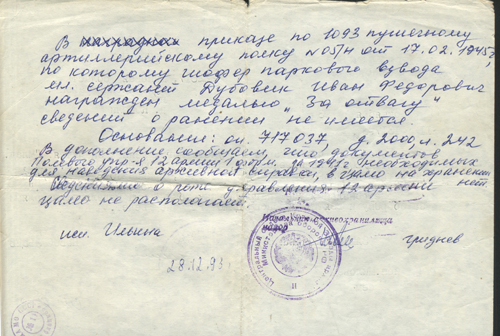 В наградном приказе по 1093 пушечному
артиллерийскому полку № 05/н от 17.02.1945г,
по которому шофер паркового взвода
мл. сержант Дубовик Иван Федорович
награжден медалью „За отвагу"
сведений о ранении не имеется.
Основание: оп. 717037, д. 2000, л. 242
В дополнение сообщаем, что документов
Полевого упр-я 12 армии 1 форм. за 1941г необходимых
для наведения архивной справки, в ЦАМО на хранении
нет
Сведениями о управления 12 армии
ЦАМО не располагаем.
Начальник архивохранилища
майор
исп. Ильина
гриднев
28.12.93
Центральный